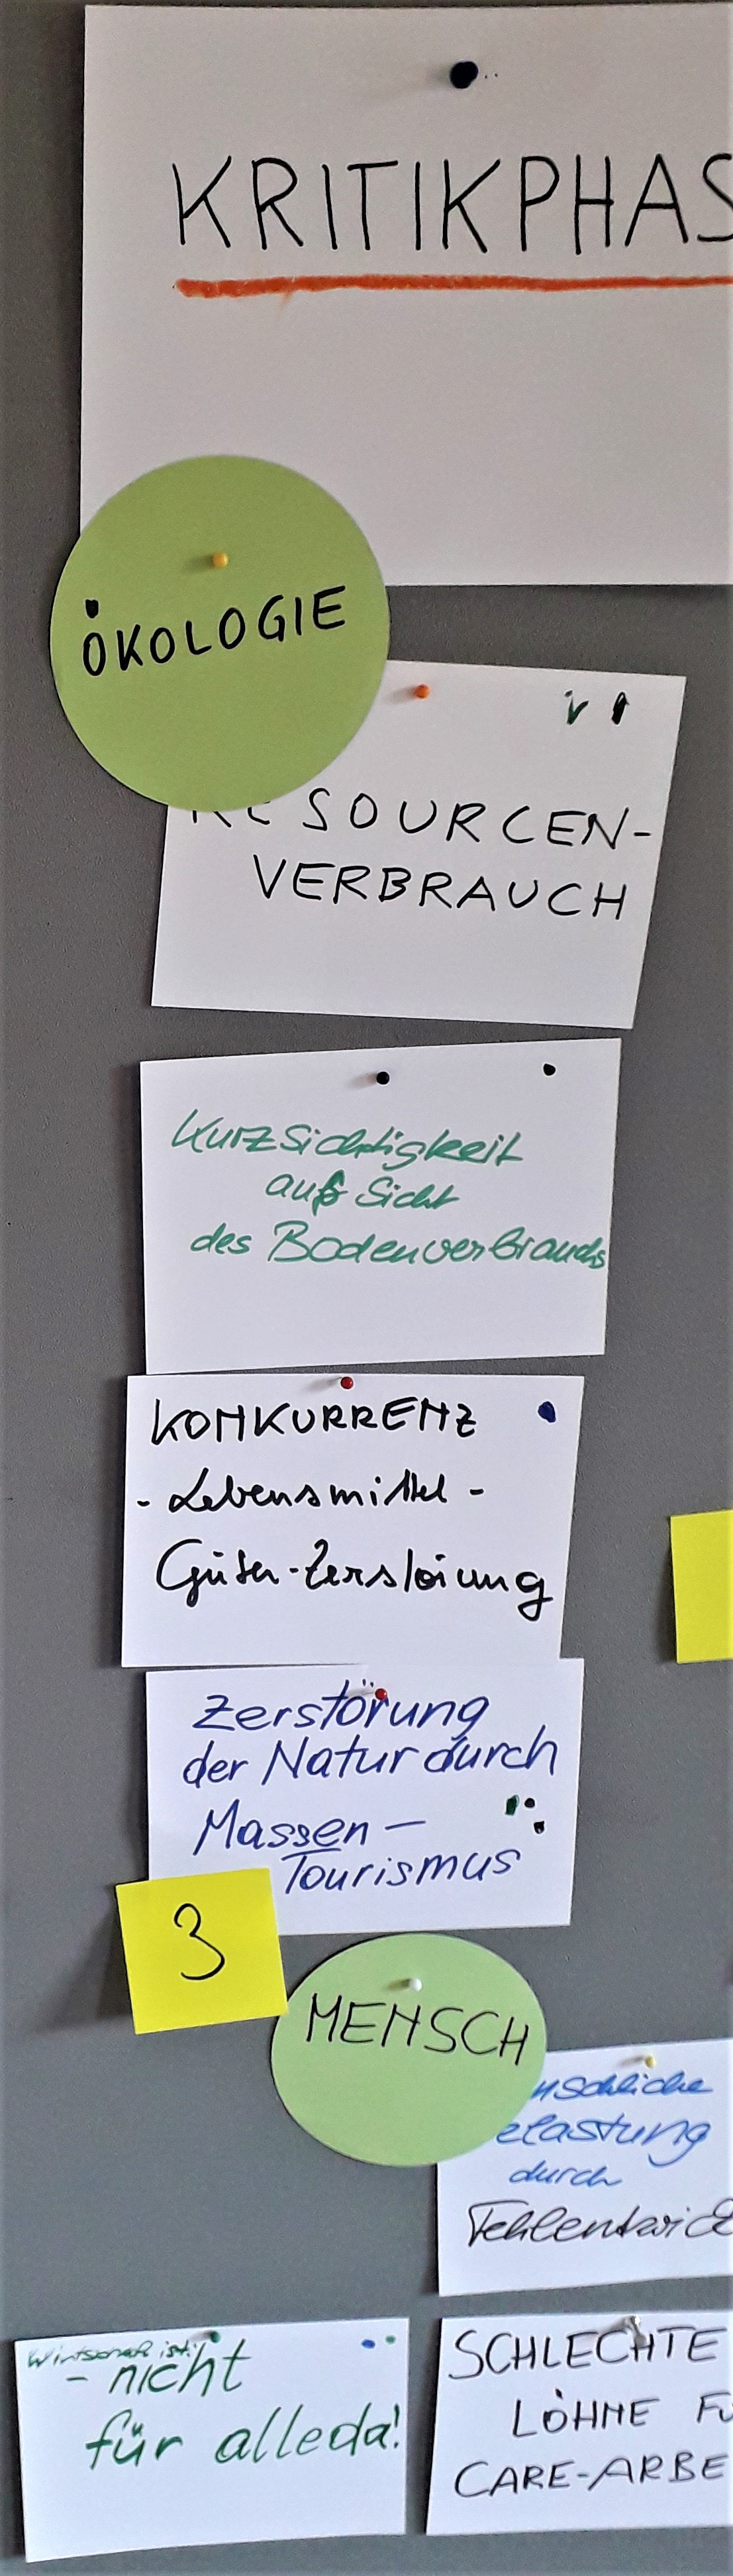 KRITIKPHAS
ÖKOLOGIE
RESOURCEN-
VERBRAUCH
Kurzsichtigkeit
aus Sicht
des Bodenverbrauchs
KONKURRENZ
- Lebensmittel -
Güter-Zerstörung
Zerstörung
der Natur durch
Massen-
Tourismus
3
MENSCH
nschliche
elastung
durch
Fehlentwick
Wirtschaft ist:
- nicht
für alle da!
SCHLECHTE
LÖHNE FÜ
CARE-ARBE